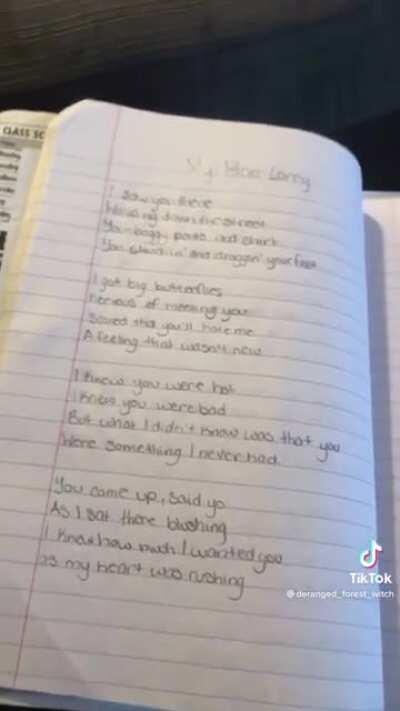 CLASS SC
I saw you there
Walking down the street
Your baggy pants and
You slouchin' and draggin' your feet
I got big butterflies
Nervous of meeting you
Scared that you'll hate me
A feeling that wasn't new
I knew you were hot
I knew you were bad
But what I didn't know was that you
Were something I never had
You came up, said yo
As I sat there blushing
I know how much I wanted you
as my heart was rushing
TikTok
@deranged_forest_witch